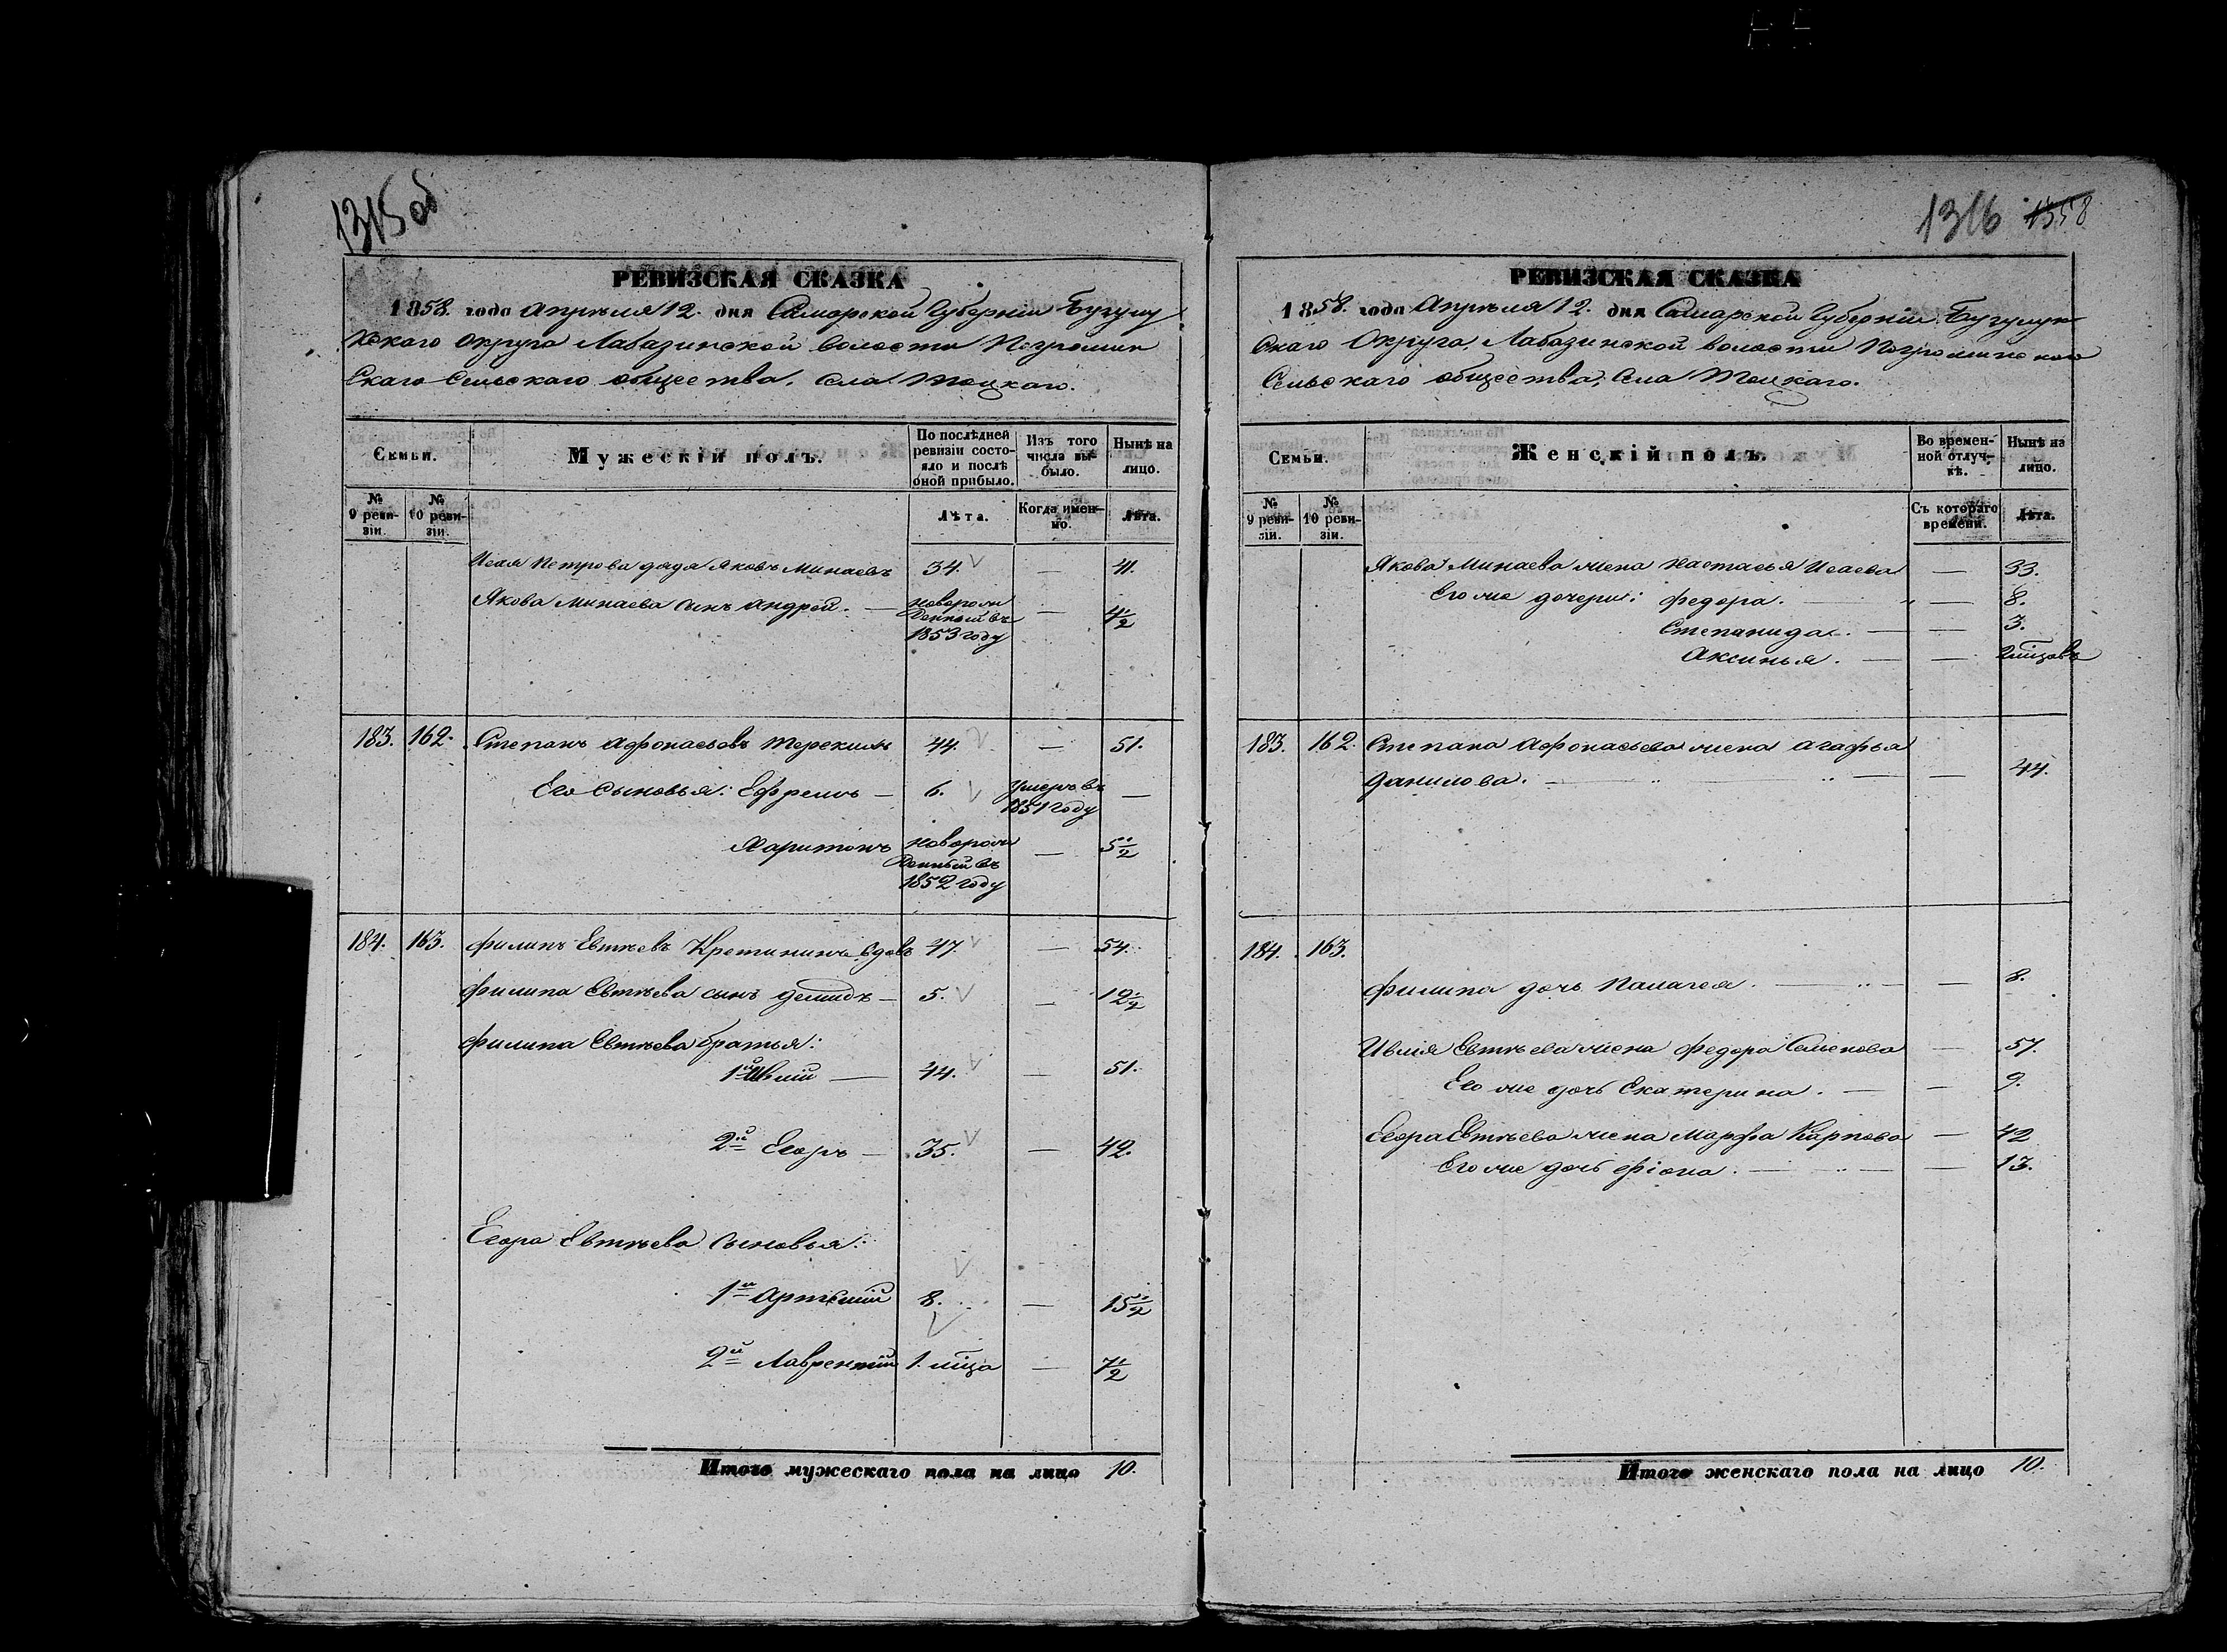 1315 об
РЕВИЗСКАЯ СКАЗКА
1858. года Апреля 12. дня Самарской Губернии Бугулу
скаго Округа Лабазинской волости Погромин
скаго Сельскаго общества, села Тоцкаго.
Семьи.
Мужескій полъ.
По послѣдней ревизіи состояло и послѣ оной прибыло.
Изъ того числа выбыло.
Нынѣ на лицо.
№ 9 ревизіи.
№ 10 ревизіи.
Лѣта.
Когда именно.
Лѣта.
Исая Петрова дядя Яковъ Минаевъ 34. — 41.
Якова Минаева сынъ Андрей. — новорожденный въ 1853 году — 4 1/2
183. 162. Степанъ Афонасьевъ Терекинъ 44. — 51.
Его сыновья: Ефремъ — 6. умеръ въ 1851 году —
Харитонъ новорожденный въ 1852 году — 5 1/2
184. 163. Филипъ Евтѣевъ Кретининъ вдовъ 47. — 54.
Филипа Евтѣева сынъ Демидъ — 5. — 12 1/2
Филипа Евтѣева братья:
1й Ивлій — 44. — 51.
2й Егоръ — 35. — 42.
Егора Евтѣева сыновья:
1й Артемій 8. — 15 1/2
2й Лаврентій 1. мѣца — 7 1/2
Итого мужескаго пола на лицо 10.
1316 1358
РЕВИЗСКАЯ СКАЗКА
1858. года Апреля 12. дня Самарской Губернии Бугулук
скаго Округа, Лабазинской волости Погроминскаго
Сельскаго общества, села Тоцкаго.
Семьи.
Женскій полъ.
Во временной отлучкѣ.
Нынѣ на лицо.
№ 9 ревизіи.
№ 10 ревизіи.
Съ котораго времени.
Лѣта.
Якова Минаева жена Настасья Исаева — 33.
Его же дочери: Федора. — — 8.
Степанида. — — 3.
Аксинья. — — 2 мѣцовъ
183. 162. Степана Афонасьева жена Агафья
Данилова. — — 44.
184. 163.
Филипа дочь Палагея. — — 8.
Ивлія Евтѣева жена Федора Семенова — 57.
Его же дочь Екатерина. — — 9.
Егора Евтѣева жена Марфа Карпова — 42
Его же дочь Фіона. — — 13.
Итого женскаго пола на лицо 10.